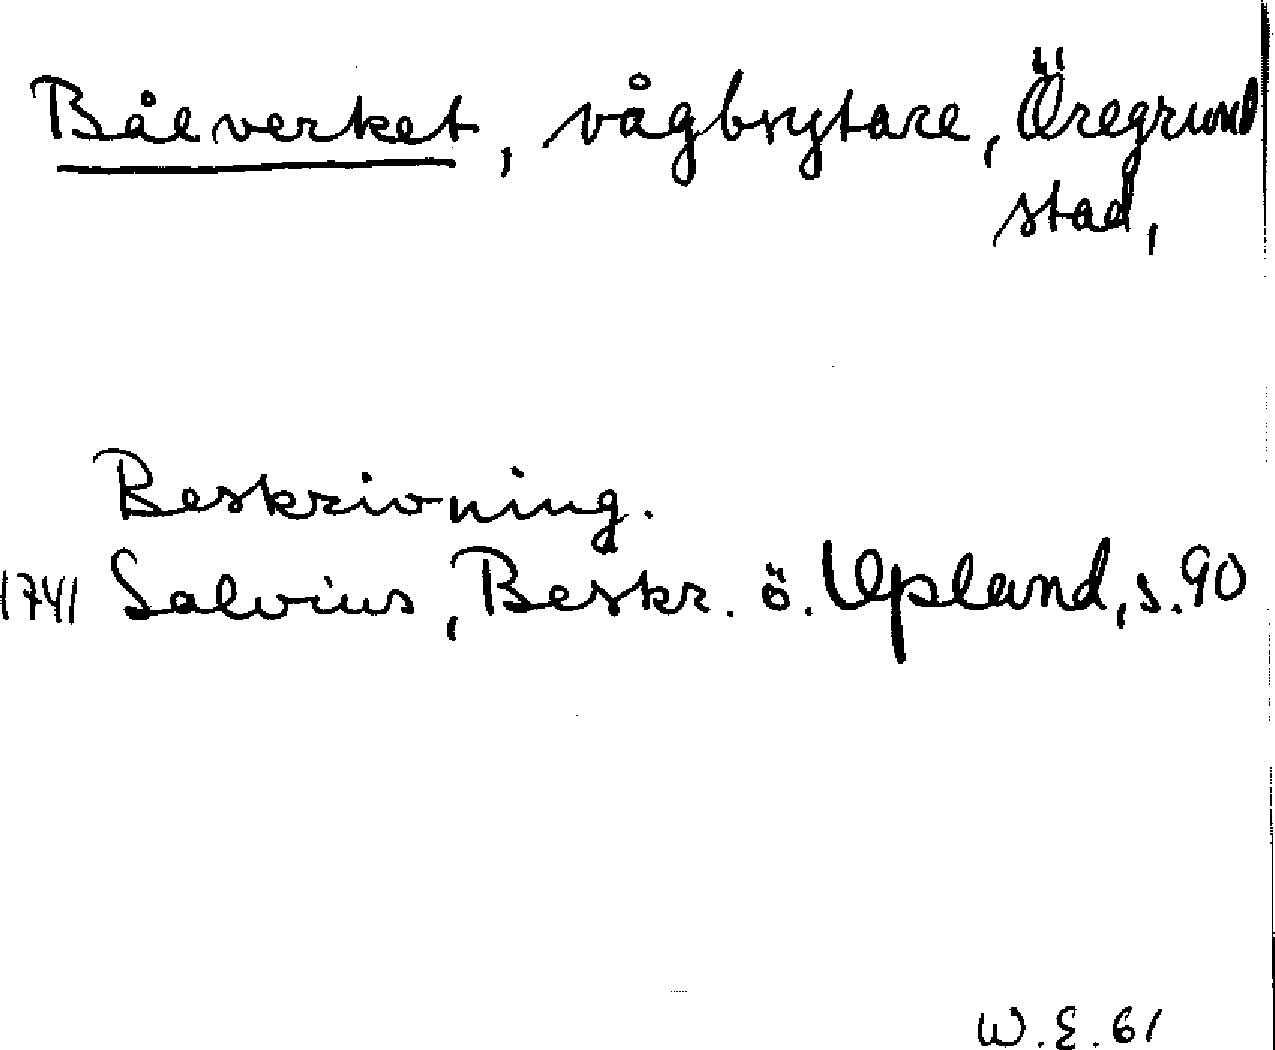 Bålverket, vågbrytare, Öregrund
stad,
Beskrivning.
1741 Salvius, Beskr. ö. Upland, s. 90
W. E. 61